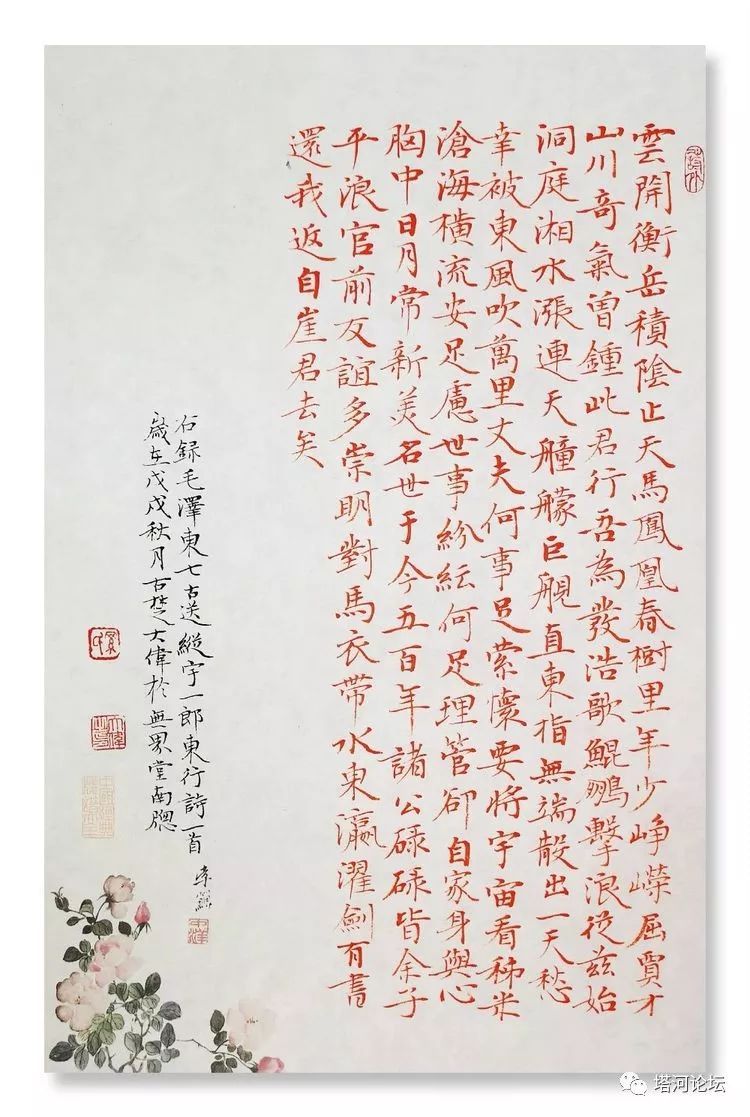 雲開衡岳積陰止天馬鳳凰春樹里年少崢嶸屈賈才
山川奇氣曾鍾此君行吾為發浩歌鯤鵬擊浪從茲始
洞庭湘水漲連天艟艨巨艦直東指無端散出一天愁
幸被東風吹萬里丈夫何事足縈懷要將宇宙看稊米
滄海橫流安足慮世事紛紜何足理管卻自家身與心
胸中日月常新美名世于今五百年諸公碌碌皆余子
平浪官前友誼多崇明對馬衣帶水東瀛濯劍有書
還我返自崖君去矣
右録毛澤東七古送縱宇一郎東行詩一首
歲在戊戌秋月古楚大偉於無界堂南牕
塔河论坛